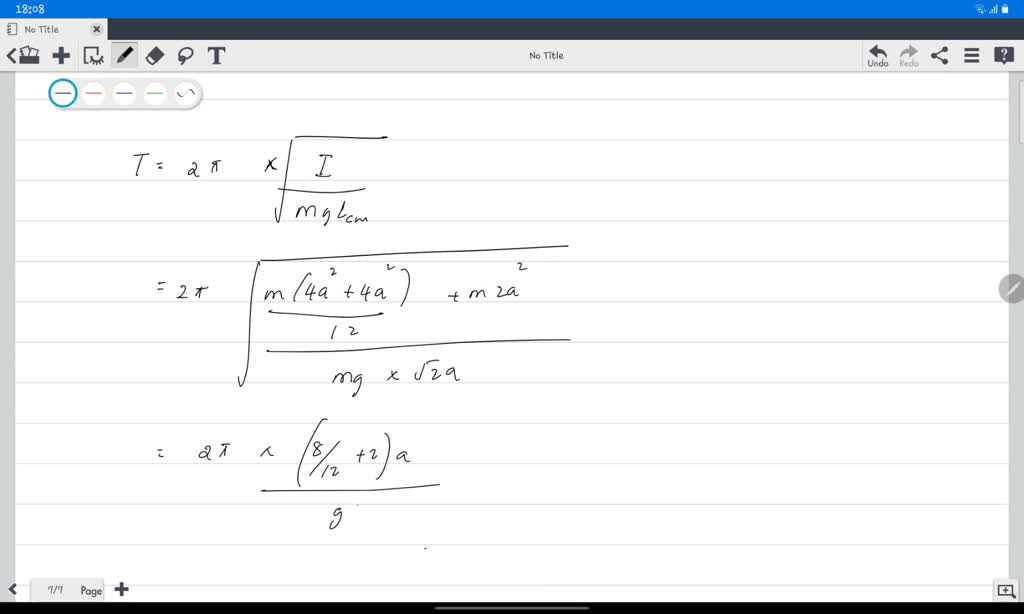 18:08
No Title
No Title
Undo
Redo
T = 2π × √(I / mgLcm)
= 2π √((m(4a² + 4a²) / 12 + m2a²) / (mg × √2a))
= 2π × (8/12 + 2)a / g
7/7 Page